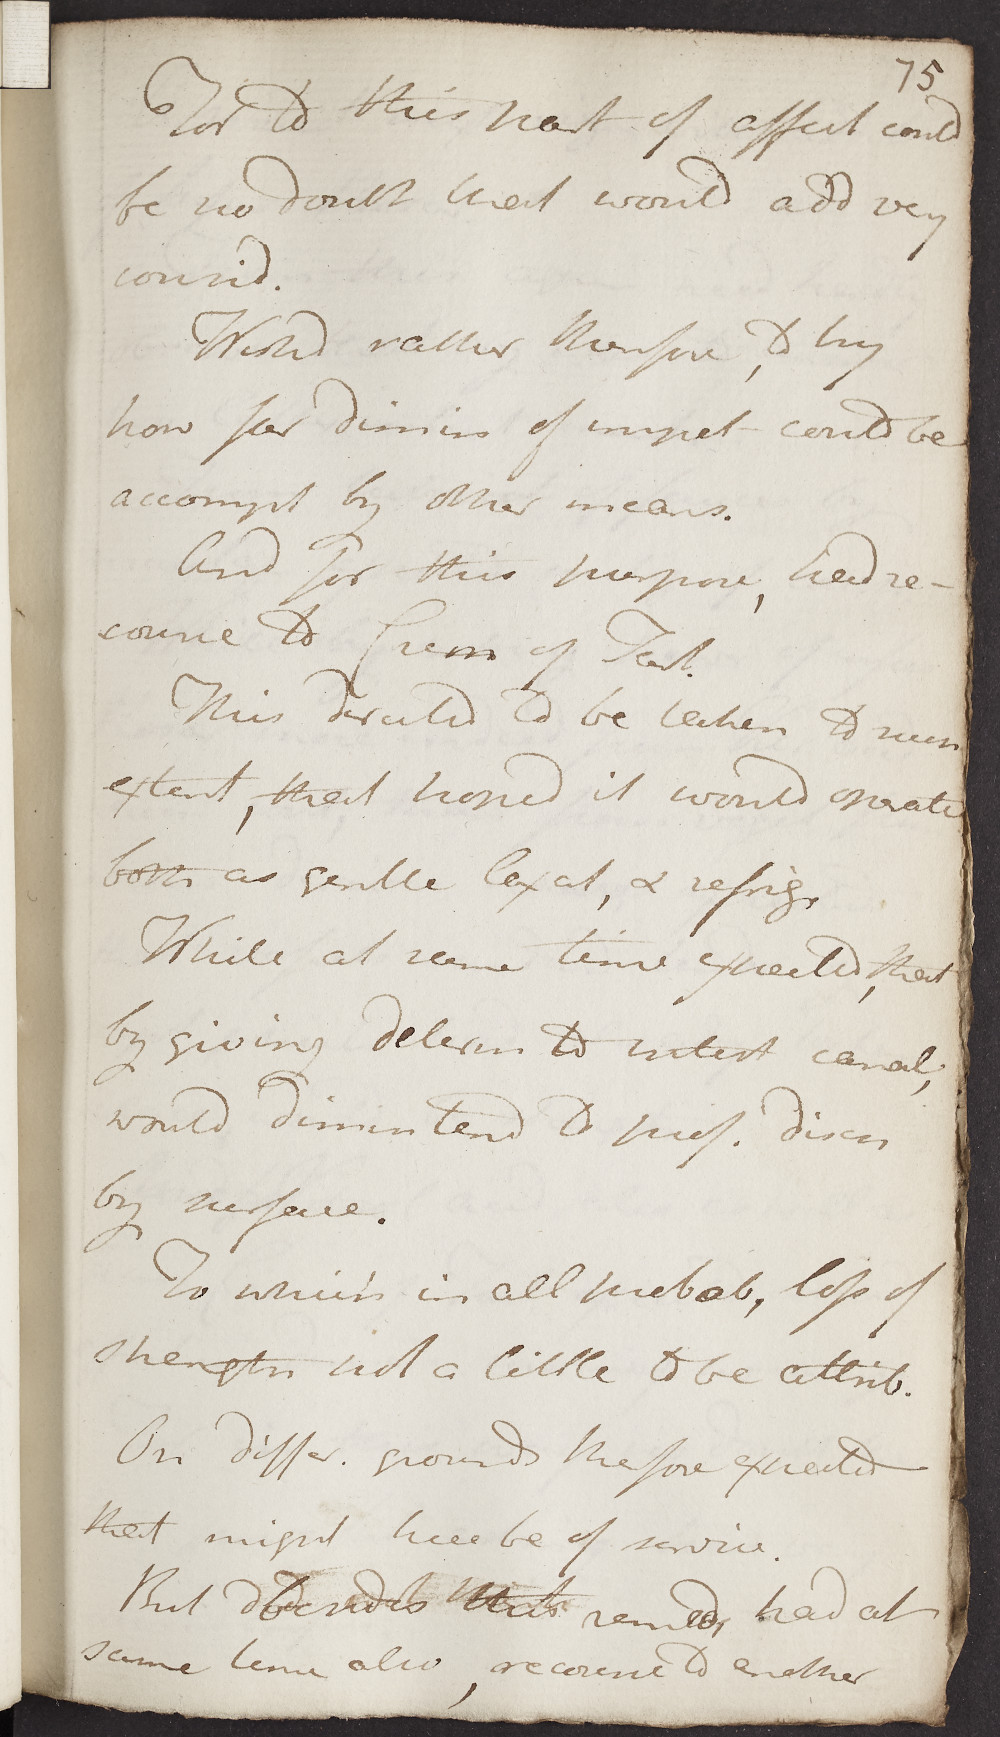 75
For to this part of affect could
be no doubt that would add very
consid.
Wishd rather therefore, to try
how far dimin of impet could be
accompt by other means.
And for this purpose, had re-
course to Crem of Tart.
This directed to be taken to such
extent, that hoped it would operate
both as gentle laxat, & refrig.
While at same time expected, that
by giving determ to intest canal,
would dimin tend to prof. disch
by surface.
To which in all probab, loss of
strength not a little to be attrib.
On differ. grounds therefore expected
that might here be of service.
But besides this remedy, had at
same time also, recourse to another